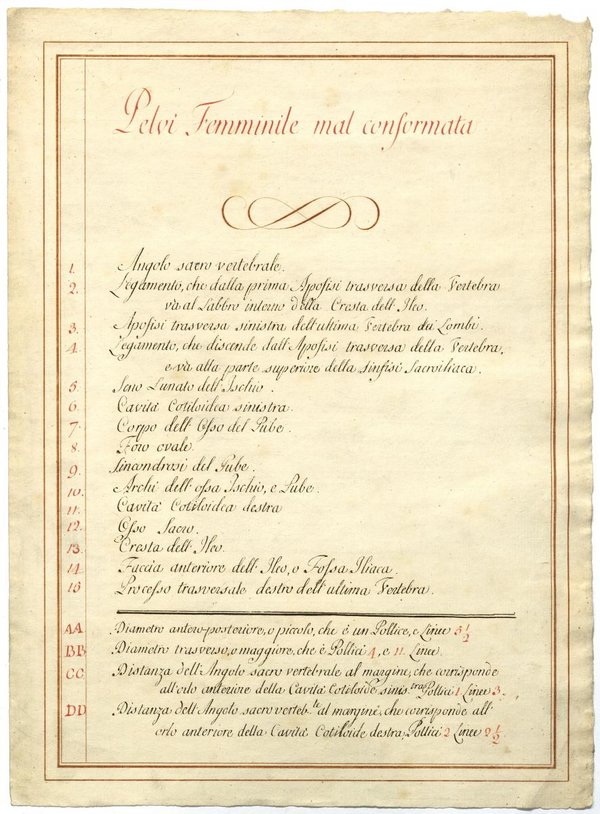 Pelvi Femminile mal conformata
1. Angolo sacro vertebrale.
2. Legamento, che dalla prima Apofisi trasversa della Vertebra
và al Labbro interno della Cresta dell'Ileo.
3. Apofisi trasversa sinistra dell'ultima Vertebra dei Lombi.
4. Legamento, che discende dall'Apofisi trasversa della Vertebra,
e và alla parte superiore della Sinfisi Sacroiliaca.
5. Seno Lunato dell'Ischio.
6. Cavità Cotiloidea sinistra.
7. Corpo dell'Osso del Pube.
8. Foro ovale.
9. Sincondrosi del Pube.
10. Archi dell'ossa Ischio, e Pube.
11. Cavità Cotiloidea destra
12. Osso Sacro.
13. Cresta dell'Ileo.
14 Faccia anteriore dell'Ileo, o Fossa Iliaca.
15 Processo trasversale destro dell'ultima Vertebra.
AA. Diametro antero-posteriore, o piccolo, che è un Pollice, e Linee 5 1/2
BB Diametro trasverso, o maggiore, che è Pollici 4, e 11 Linee.
CC Distanza dell'Angolo sacro vertebrale al margine, che corrisponde
all'orlo anteriore della Cavità Cotiloide sinis.tra Pollici 1 Linee 3.
DD Distanza dell'Angolo sacro verteb.le al margine, che corrisponde all'
orlo anteriore della Cavità Cotiloide destra, Pollici 2 Linee 2 1/2